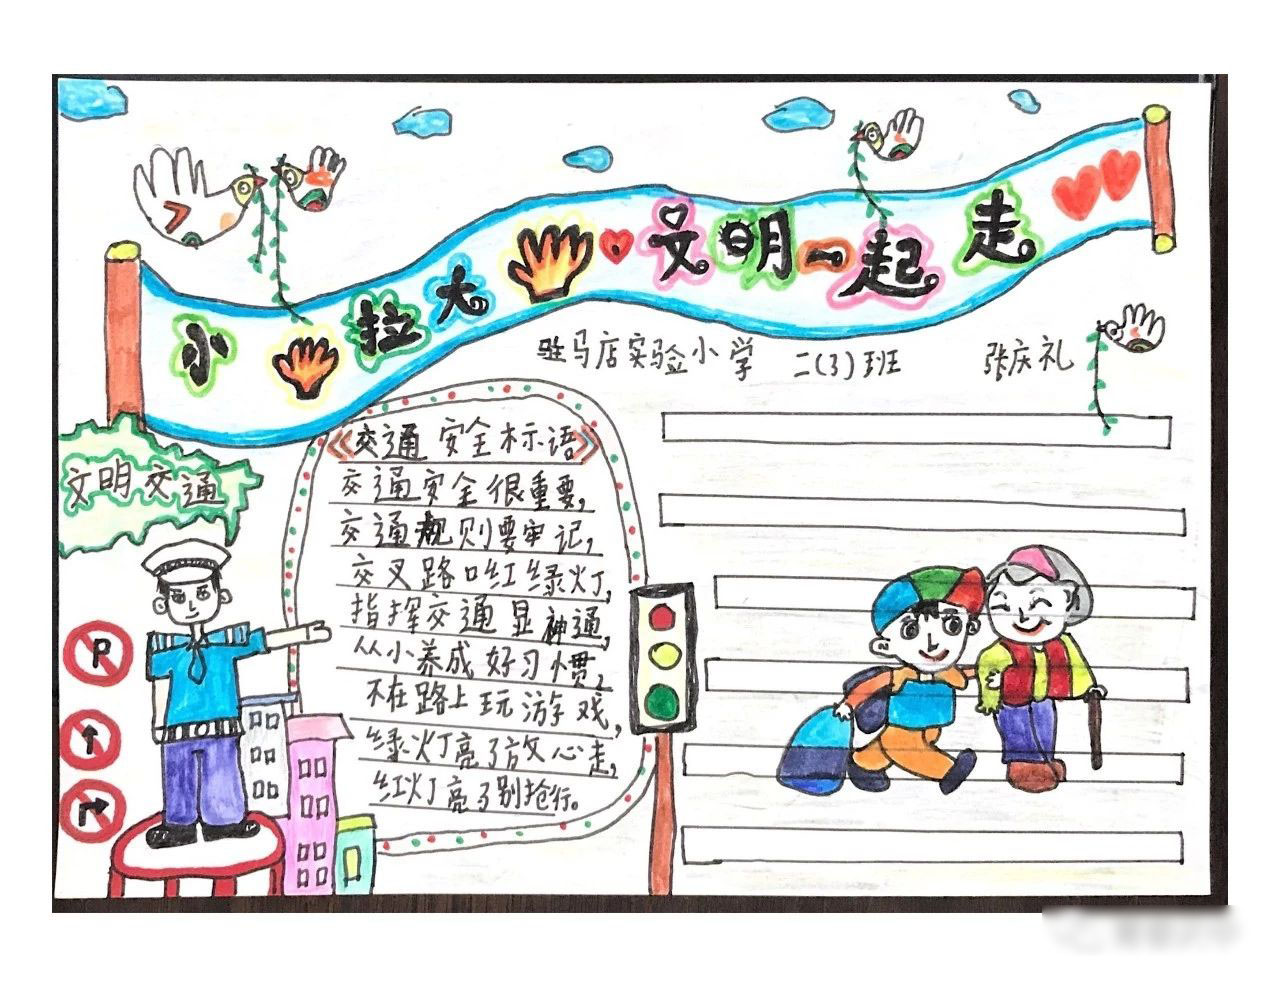 小拉大文明一起走
驻马店实验小学 二(3)班 张庆礼
《交通安全标语》
交通安全很重要,
交通规则要牢记,
交叉路口红绿灯,
指挥交通显神通,
从小养成好习惯,
不在路上玩游戏,
绿灯亮了放心走,
红灯亮了别抢行。
文明交通
P